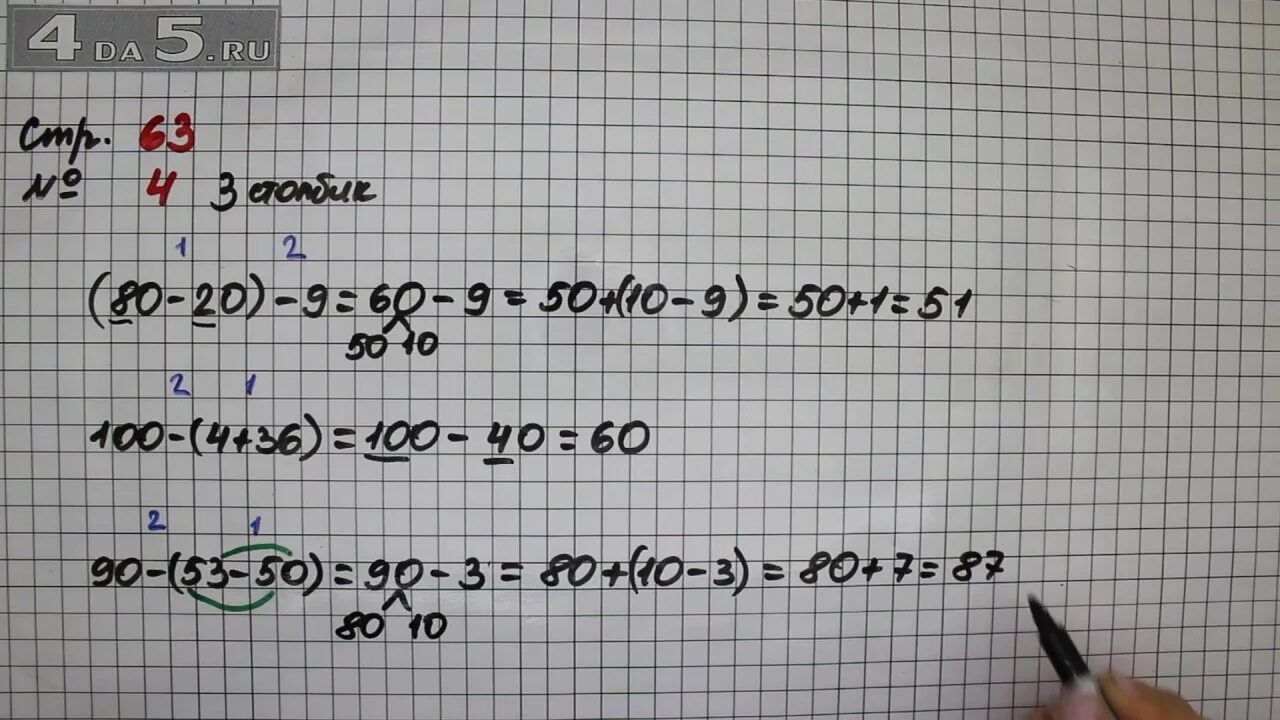 4DA5.RU
Стр. 63
№ 4 3 столбик
1 2
(80-20)-9=60-9=50+(10-9)=50+1=51
50 10
2 1
100-(4+36)=100-40=60
2 1
90-(53-50)=90-3=80+(10-3)=80+7=87
80 10